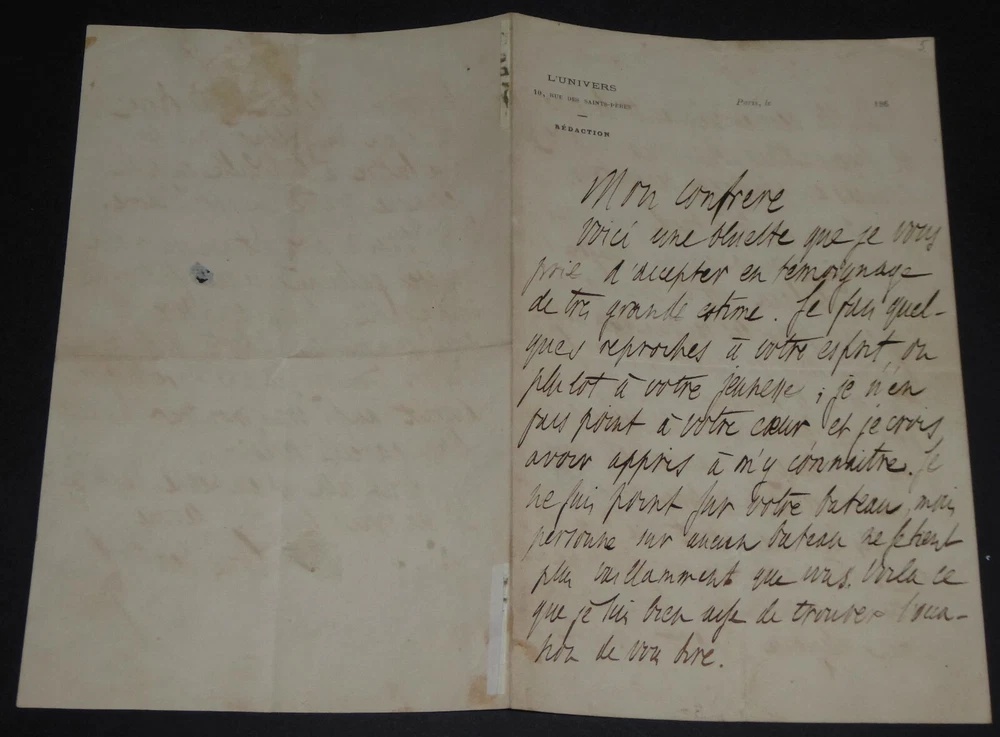 5.
L'UNIVERS
10, RUE DES SAINTS-PÈRES
RÉDACTION
Paris, le 186
Mon confrere
Voici une bluette que je vous
prie d'accepter en témoignage
de tres grande estime. Je fais quel-
ques reproches à votre esprit, ou
plutot à votre jeunesse ; je n'en
fais point à votre cœur et je crois
avoir appris à m'y connaitre. Je
ne suis point sur votre bateau, mais
personne sur aucun bateau ne se tient
plus vaillamment que vous. Voila ce
que je suis bien aise de trouver l'occa-
sion de vous dire.